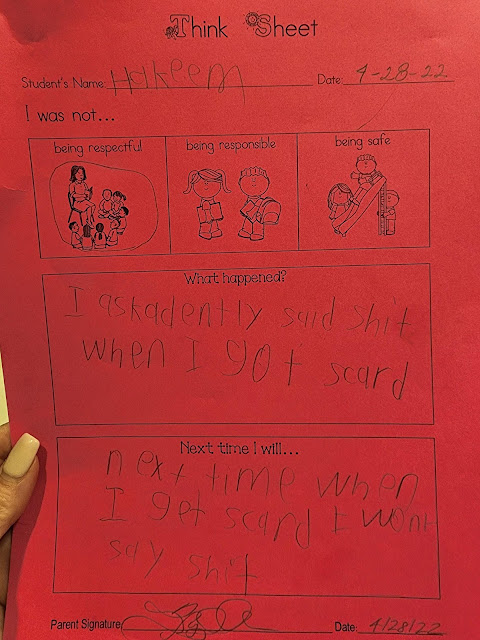 Think Sheet
Student's Name: Hakeem Date: 4-28-22
I was not...
being respectful being responsible being safe
What happened?
I askadently said shit
when I got scard
Next time I will...
next time when
I get scard I wont
say shit
Parent Signature: Date: 4/28/22